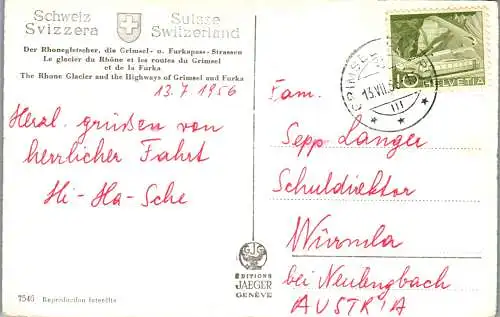 Schweiz Suisse
Svizzera Switzerland
Der Rhonegletscher, die Grimsel- u. Furkapass-Strassen
Le glacier du Rhône et les routes du Grimsel
et de la Furka
The Rhone Glacier and the Highways of Grimsel and Furka
13.7.1956
Herzl. grüßen von
herrlicher Fahrt
Hi-Ha-Sche
7546 Reproduction interdite
EDITIONS
JAEGER
GENÈVE
GRIMSEL
13.VII.56
HELVETIA
Fam.
Sepp Langer
Schuldirektor
Würmla
bei Neulengbach
AUSTRIA